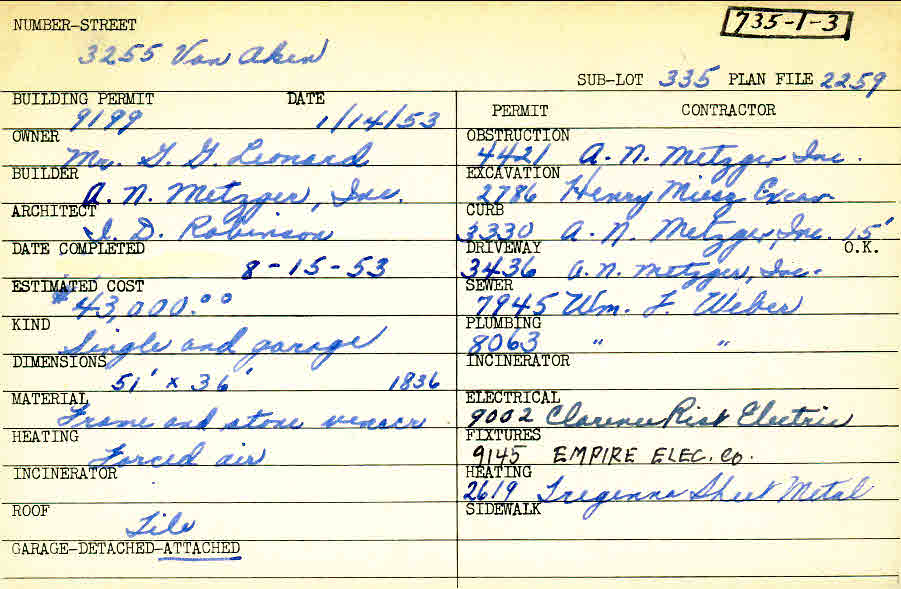 735-1-3
NUMBER-STREET
3255 Van Aken
SUB-LOT 335 PLAN FILE 2259
BUILDING PERMIT DATE
9199 1/14/53
OWNER
Mr. G. G. Leonard
BUILDER
A. N. Metzger, Inc.
ARCHITECT
I. D. Robinson
DATE COMPLETED
8-15-53
ESTIMATED COST
$43,000.00
KIND
Single and garage
DIMENSIONS
51' x 36' 1836
MATERIAL
Frame and stone veneer
HEATING
Forced air
INCINERATOR
ROOF
Tile
GARAGE-DETACHED-ATTACHED
PERMIT CONTRACTOR
OBSTRUCTION
4421 A. N. Metzger Inc.
EXCAVATION
2786 Henry Miesz Excav
CURB
3330 A. N. Metzger, Inc. 15'
DRIVEWAY O.K.
3436 A. N. Metzger, Inc.
SEWER
7945 Wm. F. Weber
PLUMBING
8063 " "
INCINERATOR
ELECTRICAL
9002 Clarence Rist Electric
FIXTURES
9145 EMPIRE ELEC. CO.
HEATING
2619 Tregenna Sheet Metal
SIDEWALK